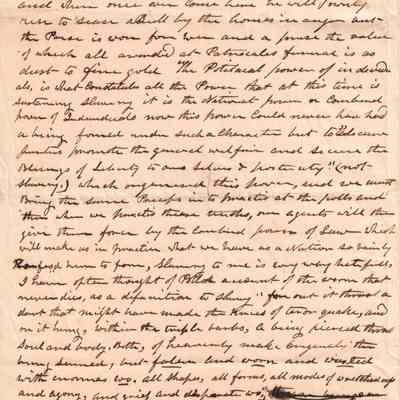 and then once ever come here he will
rise to sease a Bull by the hornes in anger and
the Purse is won from and a purse the value
of which all awarded at Patrocoles funeral is as
dust to fine gold The Political power of individu
als, is what Constitutes all the Power that at this time is
sustaining Slavery it is the National power or Combined
power of Individuals now this power Could never have had
a being formed under such a Character but to secure
Justice promote the general welfair and secure the
Blessings of Liberty to our Selves & posterity" (not
Slavery) which organised this power, and we must
Bring the same Precepts into practice at the polls and
then when we practice these truths, our agents will then
give them force by the Combined power of Law which
will make us in practice what we have as a Nation so vainly
been to form, Slavery to me is every way hatefull,
I have often thought of Polloks account of the worm that
never dies, as a definition to Slavery "for out it thrust a
dart that might have made the knees of terror quake, and
on it hung, within the triple barbs, a being pierced through
Soul and body Both, of heavenly make originaly the
being seemed, but fallen and worn and wasted
with enormas wo. all shapes, all forms, all modes of wretchedness
and agony, and grief and desparate wo,